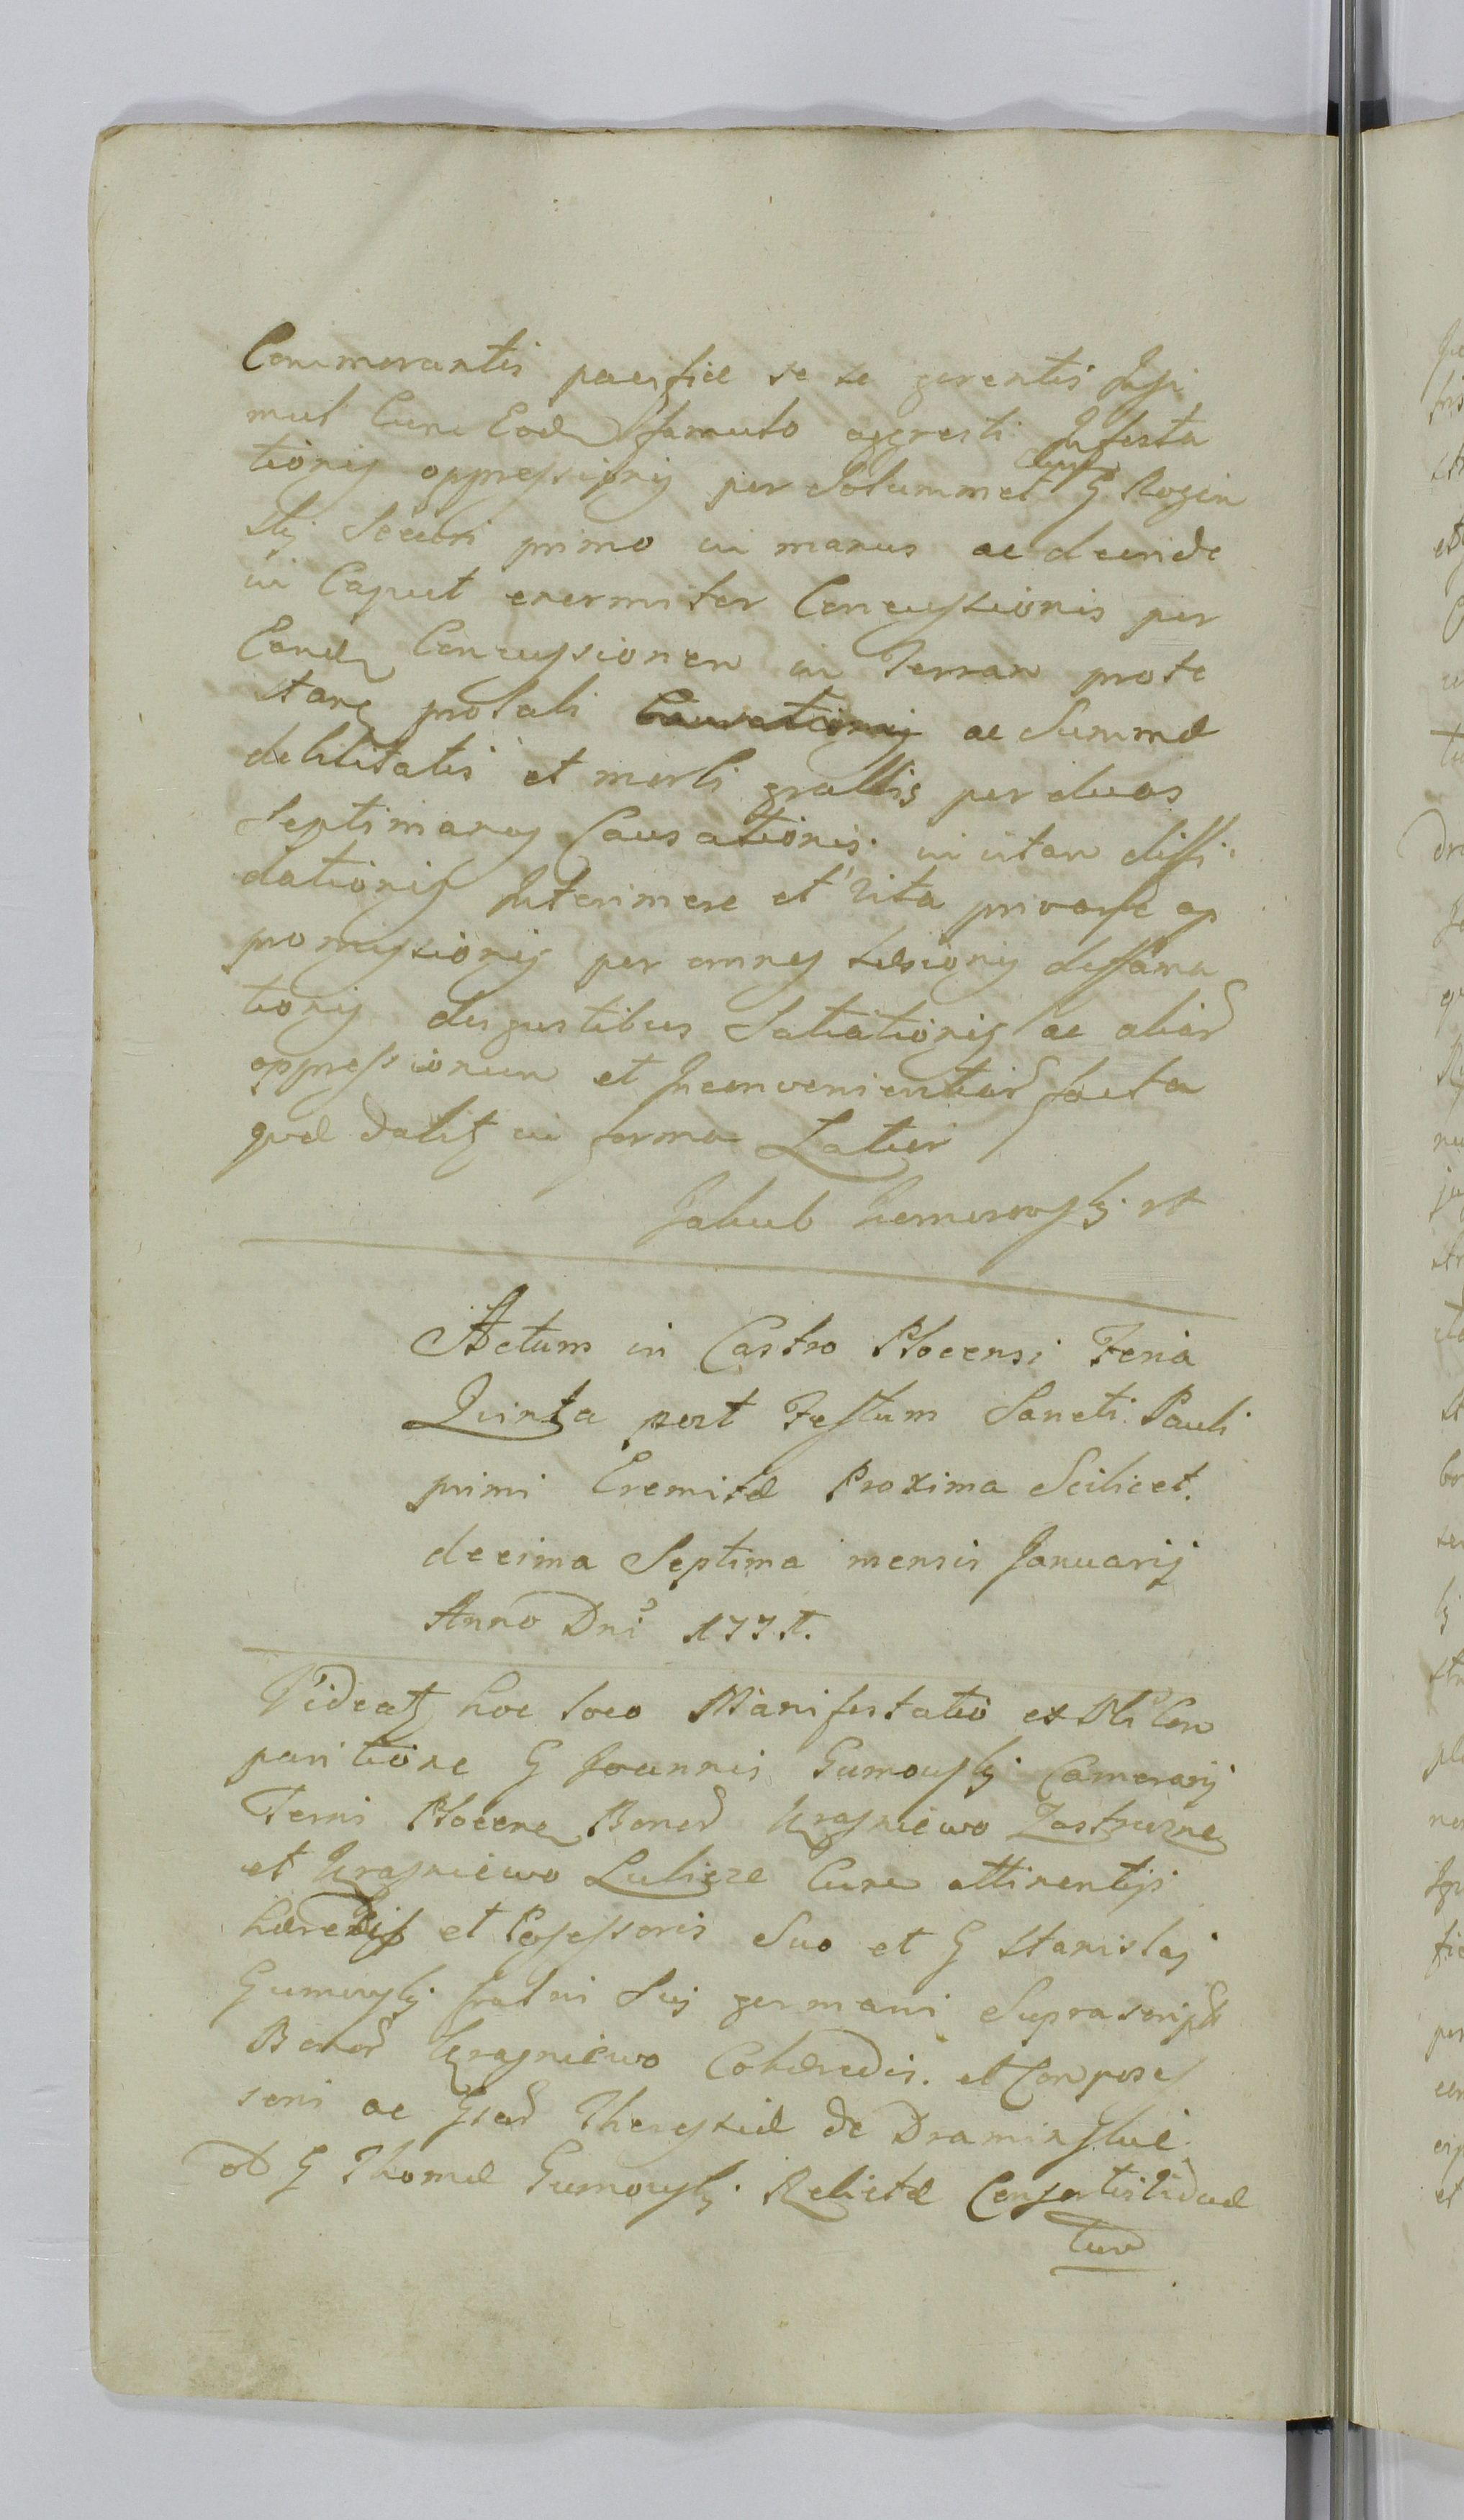 Commorantis pacifice se se gerentis Insi
mul Cum Eod famulo aggresti Infesta
tionis oppressionis per Solummet G Rogin
ski Securi primo in manus ac deinde
in Caput enormiter Concussionis per
Eand Concussionem in Terram proste
ac Summæ
debilitatis et morbi gravis per duas
Septimanas Causationis in vitam diffi
dationis Interimere et vita privare ap
promissionis per omnes læsionis diffama
tionis disgustibus Satiationis ac aliar
oppressionum et Inconvenientiar facta
quæ dabit in forma Latiori
Jakub
Actum in Castro Plocensi Feria
Quinta post Festum Sancti Pauli
primi Eremitæ Proxima Scilicet.
decima Septima mensis Januarij
Anno Dni 1771.
Videat hoc loco Manifestatio ex Com
paritione G Joannis Gumowski Camerarij
Terri Plocen Bonor Krajniewo
et Krajniewo Cum attinentijs
hæredis et Possessoris Suo et G Stanislaj
Gumowski fratris Sui germani Suprascript
Bonor Krajniewo Cohæredis. et Compose
soris ac Gsær Theressiæ de Draminskie
G Thomæ Gumowski Relictæ Consortis Viduæ
tum